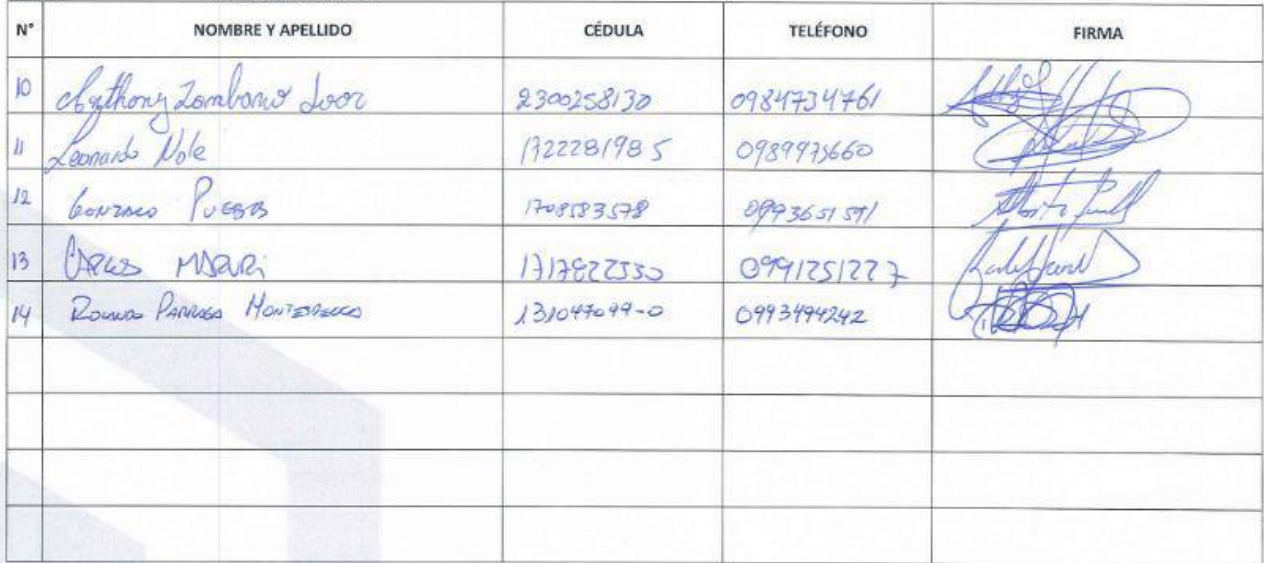 N° NOMBRE Y APELLIDO CÉDULA TELÉFONO FIRMA
10 Anthony Zambrano Loor 2300258130 0984734761
11 Leonardo Nole 1722281985 0989975660
12 Gonzalo 1708583578 0993651591
13 Carlos 1717822530 0991251227
14 Parraga 131047099-0 0993494242